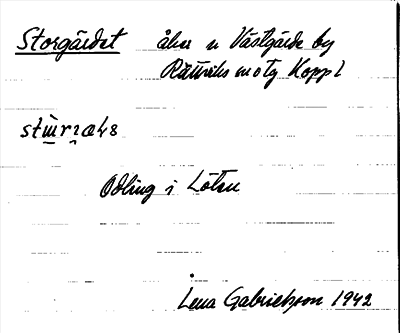 Storgärdet åker n Västgärde by
Rättviks m otg Koppl
Odling i Löten
Lena Gabrielsson 1942